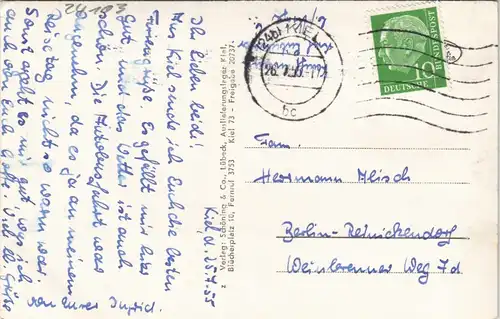 24183
Kiel d. 25.7.55
Ihr Lieben beid!
Aus Kiel sende ich Euch die besten
Feriengrüße. Es gefällt mir hier
gut und das Wetter ist auch
schön. Die Autobusfahrt war
angenehm, da es ja an meinem
Reisetag nicht so warm war.
Sonst geht es mir gut, was ich
auch von Euch hoffe. Viele Grüße
von Eurer Ingrid.
Verlag: Schöning & Co., Lübeck, Auslieferungslager Kiel,
Blücherplatz 10, Fernruf 3753 Kiel 73 - Freigabe 20737
(24b) KIEL
bc
DEUTSCHE BUNDESPOST
10
Fam.
Herrmann
Berlin-Reinickendorf
Weinbrenner Weg 7d